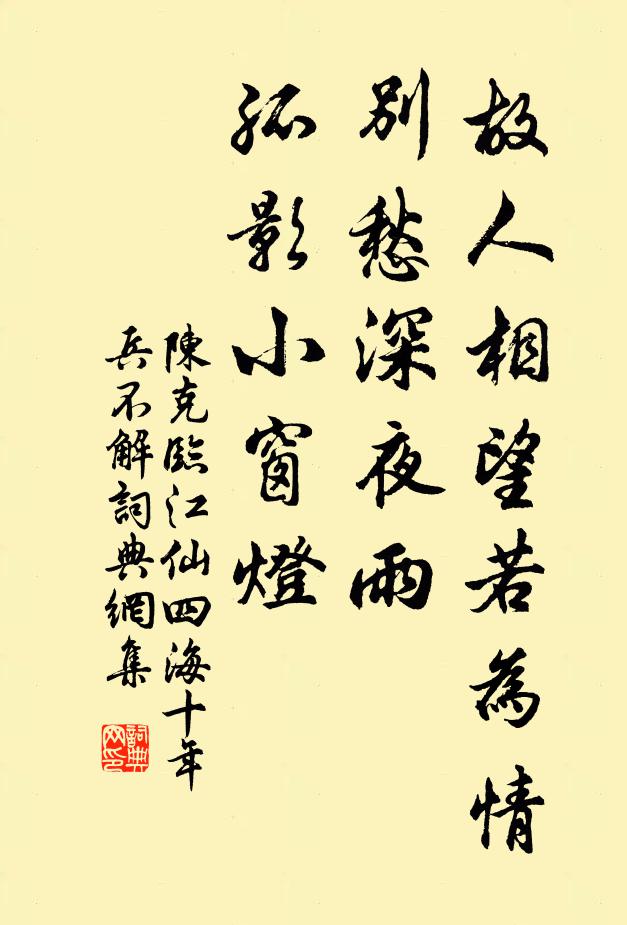 故人相望若為情
別愁深夜雨
孤影小窗燈
陳克臨江仙四海十年
兵不解詞典網集
詞典网印